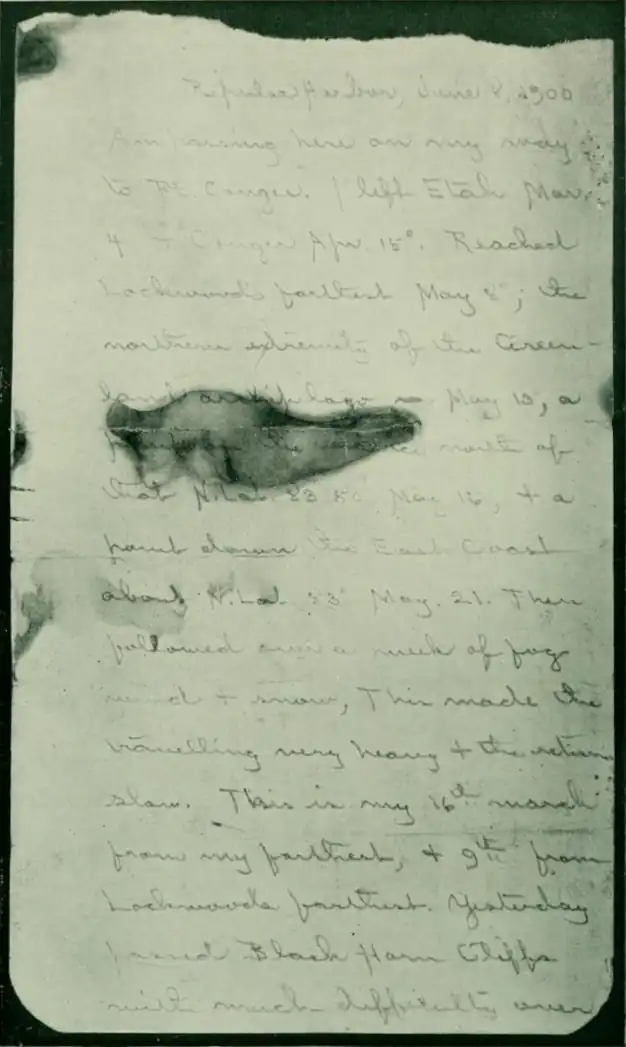 Repulse Harbor, June 8, 1900
Am passing here on my way
to Ft. Conger. I left Etah Mar.
4 & Conger Apr. 15". Reached
Lockwood's farthest May 8"; the
northern extremity of the Green-
land archipelago May 13, a
the north of
that N. Lat. 83 50' May 16, & a
point down the East Coast
about N. Lat. 83° May. 21. Then
followed over a week of fog
wind & snow, This made the
travelling very heavy & the return
slow. This is my 16th march
from my farthest, & 9th from
Lockwoods farthest. Yesterday
passed Black Horn Cliffs
with much difficulty over